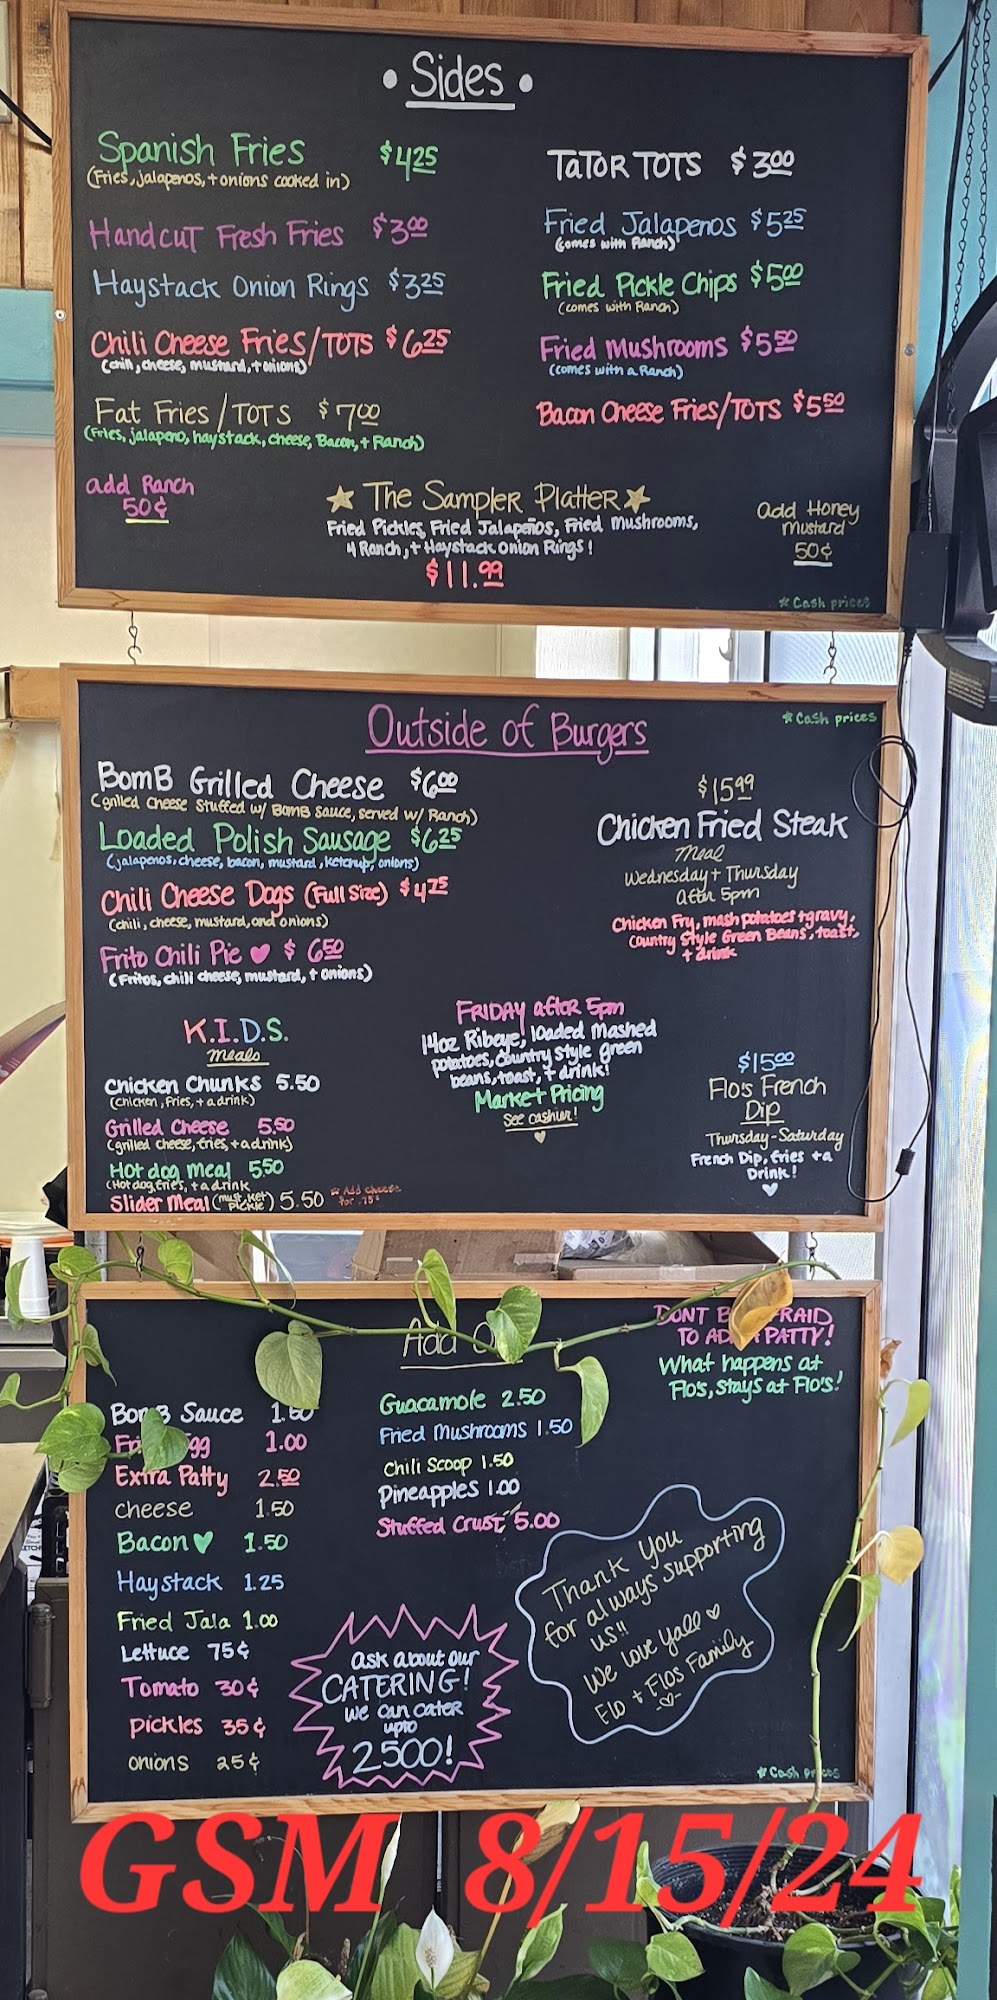 • Sides •
Spanish Fries $4.25
(Fries, jalapenos, + onions cooked in)
Handcut Fresh Fries $3.00
Haystack Onion Rings $3.25
Chili Cheese Fries/TOTS $6.25
(chili, cheese, mustard, + onions)
Fat Fries/TOTS $7.00
(Fries, jalapeno, haystack, cheese, Bacon, + Ranch)
add Ranch
50¢
TaTOR TOTS $3.00
Fried Jalapenos $5.25
(comes with Ranch)
Fried Pickle Chips $5.00
(comes with Ranch)
Fried Mushrooms $5.50
(comes with a Ranch)
Bacon Cheese Fries/TOTS $5.50
☆ The Sampler Platter ☆
Fried Pickles, Fried Jalapeños, Fried Mushrooms,
4 Ranch, + Haystack Onion Rings!
$11.99
add Honey
Mustard
50¢
* Cash prices
Outside of Burgers
* Cash prices
BomB Grilled Cheese $6.00
(grilled cheese stuffed w/ BomB sauce, served w/ Ranch)
Loaded Polish Sausage $6.25
(jalapenos, cheese, bacon, mustard, ketchup, onions)
Chili Cheese Dogs (Full Size) $4.75
(chili, cheese, mustard, and onions)
Frito Chili Pie ♥ $6.50
(Fritos, chili cheese, mustard, + onions)
$15.99
Chicken Fried Steak
Meal
Wednesday + Thursday
after 5pm
Chicken Fry, mash potatoes + gravy,
Country Style Green Beans, toast,
+ drink
K.I.D.S.
Meals
Chicken Chunks 5.50
(chicken, fries, + a drink)
Grilled Cheese 5.50
(grilled cheese, fries, + a drink)
Hot dog meal 5.50
(Hot dog, fries, + a drink
Slider Meal (must, ket pickle) 5.50
* Add cheese
for .75¢
FRIDAY after 5pm
14oz Ribeye, loaded mashed
potatoes, country style green
beans, toast, + drink!
Market Pricing
See cashier!
$15.00
Flo's French
Dip
Thursday-Saturday
French Dip, fries + a
Drink!
Add
DONT
TO PATTY!
What happens at
Flo's, stays at Flo's!
Sauce
1.00
Extra Patty 2.50
cheese 1.50
Bacon ♥ 1.50
Haystack 1.25
Fried Jala 1.00
Lettuce 75¢
Tomato 30¢
pickles 35¢
onions 25¢
Guacamole 2.50
Fried Mushrooms 1.50
Chili Scoop 1.50
Pineapples 1.00
Stuffed Crust 5.00
ask about our
CATERING!
we can cater
upto
2500!
Thank you
for always supporting
us!!
We love yall ♡
Flo + Flos Family
* Cash
GSM 8/15/24